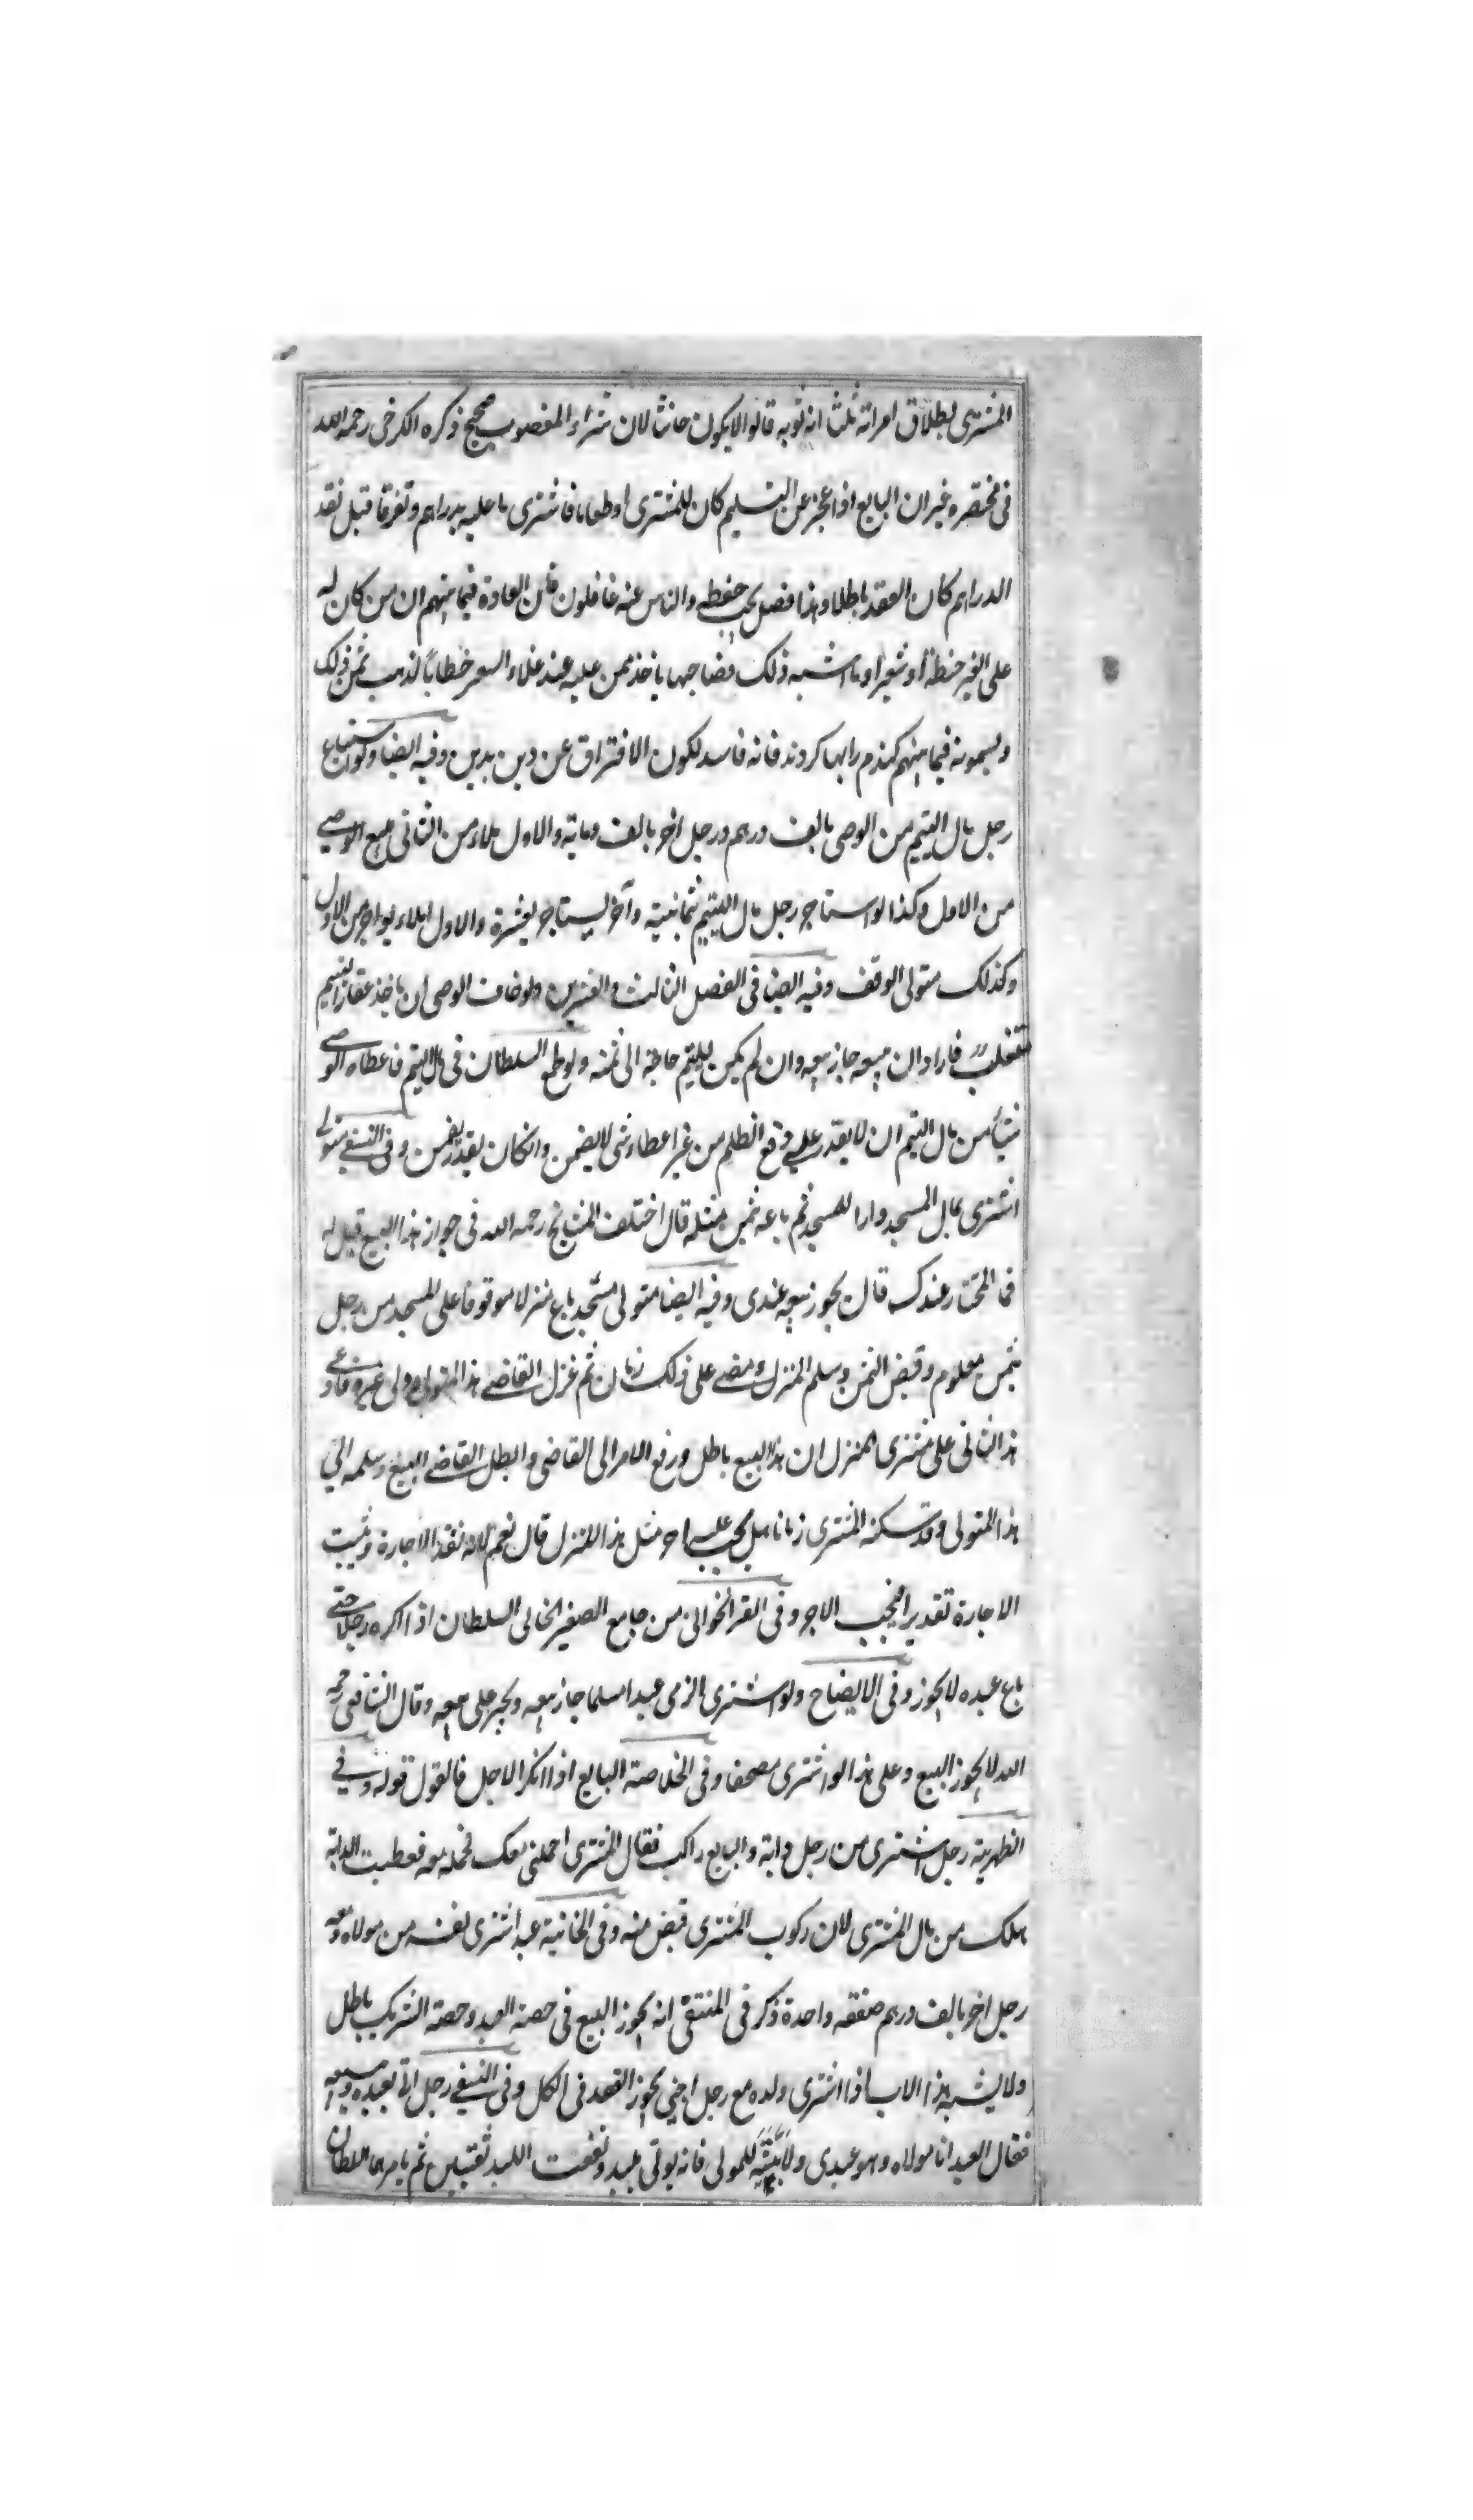 المشترى بطلاق امراته ثلثا انه ثوبه قالوا لا يكون حانثا لان شراء المغصوب صحيح ذكره الكرخى رحمه الله
فى مختصره غير ان البايع اذا عجز عن التسليم كان للمشترى او طعاما فاشترى ما عليه بدراهم وتفرقا قبل نقد
الدراهم كان العقد باطلا وهذا فصل يجب حفظه والناس عنه غافلون فان العادة فيما بينهم ان من كان له
على الغير حنطة او شعيرا وما اشبه ذلك فصاحبها ياخذ ممن عليه عند غلاء السعر خطا بالذهب بثمن ذلك
ويسمونه فيما بينهم كندم رابها كردند فانه فاسد لكون الافتراق عن دين بدين وفيه ايضا ولو استباع
رجل مال اليتيم من الوصى بالف درهم ورجل اخر بالف ومائة والاول املاء من الثانى يبيع الوصى
من الاول وكذا لو استاجر رجل مال اليتيم بثمانية وآخر يستاجر بعشرة والاول املاء يواجر من الاول
وكذلك متولى الوقف وفيه ايضا فى الفصل الثالث والعشرين ولو خاف الوصى ان ياخذ عقار اليتيم
متغلب فاراد ان يبيعه جاز بيعه وان لم يكن لليتيم حاجة الى ثمنه ولو طمع السلطان فى مال اليتيم فاعطاه الوصى
شيأ من مال اليتيم ان لا يقدر على دفع الظلم من غير اعطاء شى لا يضمن وان كان يقدر يضمن وفى النسفى متولى
اشترى بمال المسجد دارا للمسجد ثم باعه بثمن مثله قال اختلف المشايخ رحمه الله فى جواز هذا البيع قيل له
فما المختار عندك قال يجوز بيعه عندى وفيه ايضا متولى مسجد باع منزلا موقوفا على المسجد من رجل
بثمن معلوم وقبض الثمن وسلم المنزل ومضى على ذلك زمان ثم عزل القاضى هذا المتولى وولى غيره فادعى
هذا الثانى على مشترى المنزل ان هذا البيع باطل ورفع الامر الى القاضى وابطل القاضى البيع وسلمه الى
هذا المتولى وقد سكنه المشترى زمانا هل يجب عليه اجر مثل هذا المنزل قال نعم لانه نفقد الاجارة وثبت
الاجارة تقديرا فيجب الاجر وفى القر الخوالى من جامع الصغير الخانى السلطان اذا اكره رجلا حتى
باع عبده لا يجوز وفى الايضاح ولو اشترى الذمى عبدا مسلما جاز بيعه ويجبر على بيعه وقال الشافعى رحمه
الله لا يجوز البيع وعلى هذا لو اشترى مصحفا وفى الخلاصة البايع اذا انكر الاجل فالقول قوله وفى
الظهيرية رجل اشترى من رجل دابة والبايع راكب فقال المشترى احملنى معك فحمله معه فعطبت الدابة
هلك من مال المشترى لان ركوب المشترى قبض منه وفى الخانية عبد اشترى نفسه من مولاه ومعه
رجل اخر بالف درهم صفقه واحدة ذكر فى المنتقى انه يجوز البيع فى حصة العبد وحصة الشريك باطل
ولا يشبه هذا الاب اذا اشترى ولده مع رجل اجنبى يجوز العقد فى الكل وفى النسفى رجل اتى بعبده يبيعه
فقال العبد انا مولاه وهو عبدى ولا بينة للمولى فانه يوتى بلبد ثقبت اللبد ثقبتين ثم يامرهما السلطان